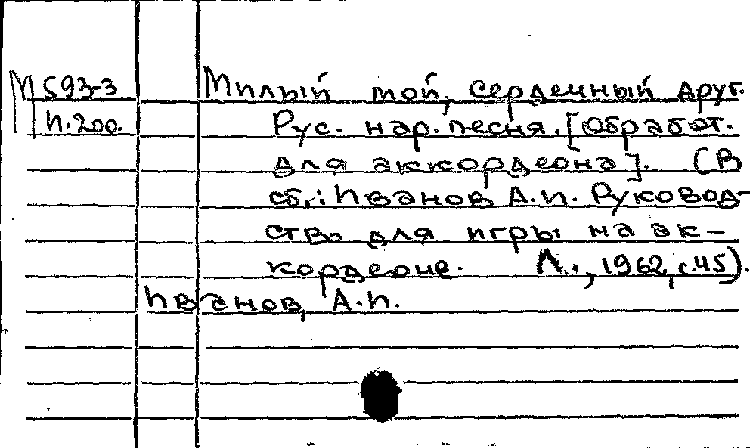 М 593-3 Милый мой, сердечный друг.
И.200. Рус. нар. песня. [Обработ.
для аккордеона]. (В
сб.: Иванов А.И. Руковод-
ство для игры на ак-
кордеоне. Л., 1962, с.45).
Иванов, А.И.